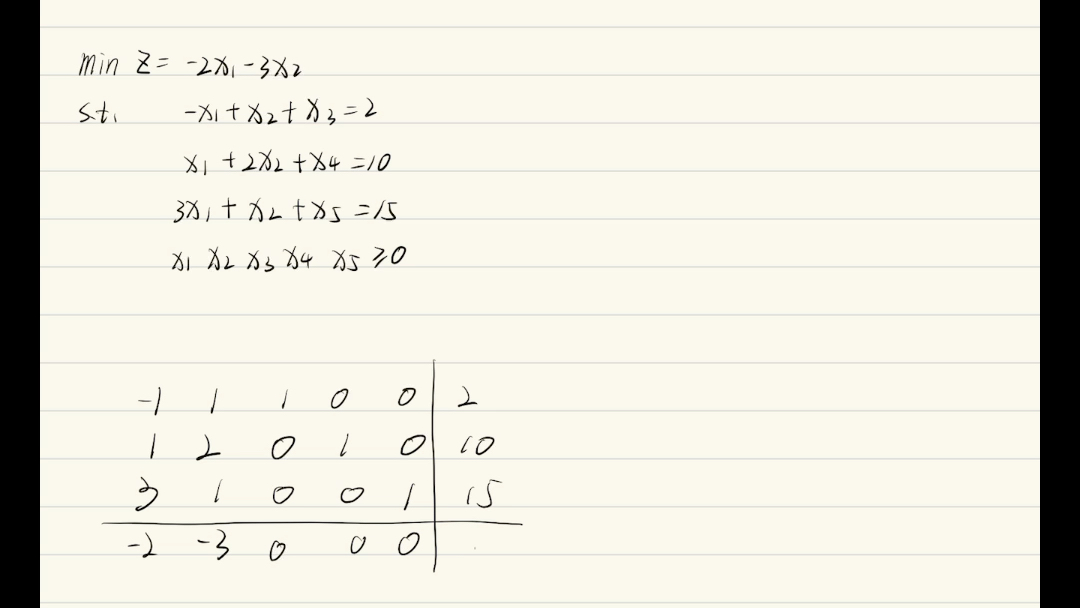 min Z = -2x₁ - 3x₂
s.t. -x₁ + x₂ + x₃ = 2
x₁ + 2x₂ + x₄ = 10
3x₁ + x₂ + x₅ = 15
x₁ x₂ x₃ x₄ x₅ ≥ 0
-1 1 1 0 0 2
1 2 0 1 0 10
3 1 0 0 1 15
-2 -3 0 0 0